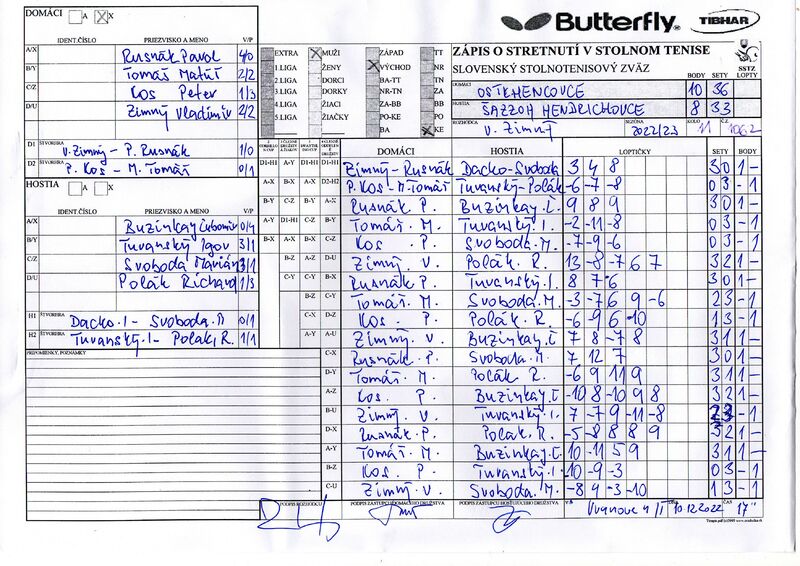 DOMÁCI A X
IDENT.ČÍSLO PRIEZVISKO A MENO V/P
A/X Rusnák Pavol 4/0
B/Y Tomáš Matúš 2/2
C/Z Kos Peter 1/3
D/U Zimný Vladimír 2/2
D1 ŠTVORHRA V. Zimný - P. Rusnák 1/0
D2 ŠTVORHRA P. Kos - M. Tomáš 0/1
HOSTIA A X
IDENT.ČÍSLO PRIEZVISKO A MENO V/P
A/X Buzinkay Ľubomír 0/4
B/Y Turanský Igor 3/1
C/Z Svoboda Marián 3/1
D/U Polák Richard 1/3
H1 ŠTVORHRA Dacko.I - Svoboda.M 0/1
H2 ŠTVORHRA Turanský.I - Polák.R. 1/1
PRIPOMIENKY, POZNÁMKY
Butterfly TIBHAR
EXTRA X MUŽI ZÁPAD TT
1 LIGA ŽENY X VÝCHOD NR
2 LIGA DORCI BA-TT TN
3 LIGA DORKY NR-TN ZA
4 LIGA ŽIACI ZA-BB BB
5 LIGA ŽIAČKY PO-KE PO
BA X KE
ZÁPIS O STRETNUTÍ V STOLNOM TENISE
SLOVENSKÝ STOLNOTENISOVÝ ZVÄZ
SSTZ
BODY SETY LOPTY
DOMÁCI OSTKHENCOVCE 10 36
HOSTIA ŠAZZOH HENDRICHOVCE 8 33
ROZHODCA V. Zimný SEZÓNA 2022/23 KOLO 11
DOMÁCI HOSTIA LOPTIČKY SETY BODY
D1-H1 A-Y D1-H1 D1-H1 Zimný - Rusnák Dacko - Svoboda 3 4 8 3 0 1 -
A-X B-X A-X D2-H2 P. Kos - M. Tomáš Turanský - Polák -6 -7 -8 0 3 - 1
B-Y C-Z B-Y A-X Rusnák P. Buzinkay.Ľ 9 8 9 3 0 1 -
A-Y D1-H1 C-Z B-Y Tomáš. M. Turanský I. -2 -11 -8 0 3 - 1
B-X A-X B-X C-Z Kos P. Svoboda.M. -7 -9 -6 0 3 - 1
B-Z A-Z D-U Zimný. V. Polák. R. 13 -8 -7 6 7 3 2 1 -
C-Y C-Y B-X Rusnák P. Turanský.I. 8 7 6 3 0 1 -
B-Z C-Y Tomáš. M. Svoboda M. -3 -7 6 9 -6 2 3 - 1
C-X D-Z Kos. P. Polák.R. -6 -9 6 -10 1 3 - 1
A-Y A-U Zimný. V. Buzinkay.Ľ 7 8 -7 8 3 1 1 -
C-X Rusnák. P. Svoboda.M. 7 12 7 3 0 1 -
D-Y Tomáš. M. Polák R. -6 9 11 9 3 1 1 -
A-Z Kos. P. Buzinkay.Ľ -10 8 -10 9 8 3 2 1 -
B-U Zimný. V. Turanský.I. 7 -7 9 -11 -8 2 3 - 1
D-X Rusnák. P. Polák.R. -5 -8 8 8 9 3 2 1 -
A-Y Tomáš. M. Buzinkay.Ľ 10 -11 5 9 3 1 1 -
B-Z Kos P. Turanský.I. -10 -9 -3 0 3 - 1
C-U Zimný V. Svoboda.M. -8 4 -3 -10 1 3 - 1
PODPIS ROZHODCU PODPIS ZÁSTUPCU DOMÁCEHO DRUŽSTVA PODPIS ZÁSTUPCU HOSŤUJÚCEHO DRUŽSTVA 10.12.2022 ČAS